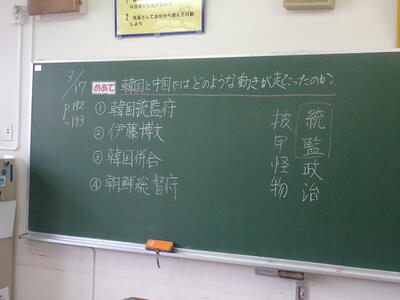 自分から進んで行動しよう
3/17
P.192
~193
めあて 韓国と中国ではどのような動きが起こったのか。
① 韓国統監府
② 伊藤博文
③ 韓国併合
④ 朝鮮総督府
統監政治
披甲怪物